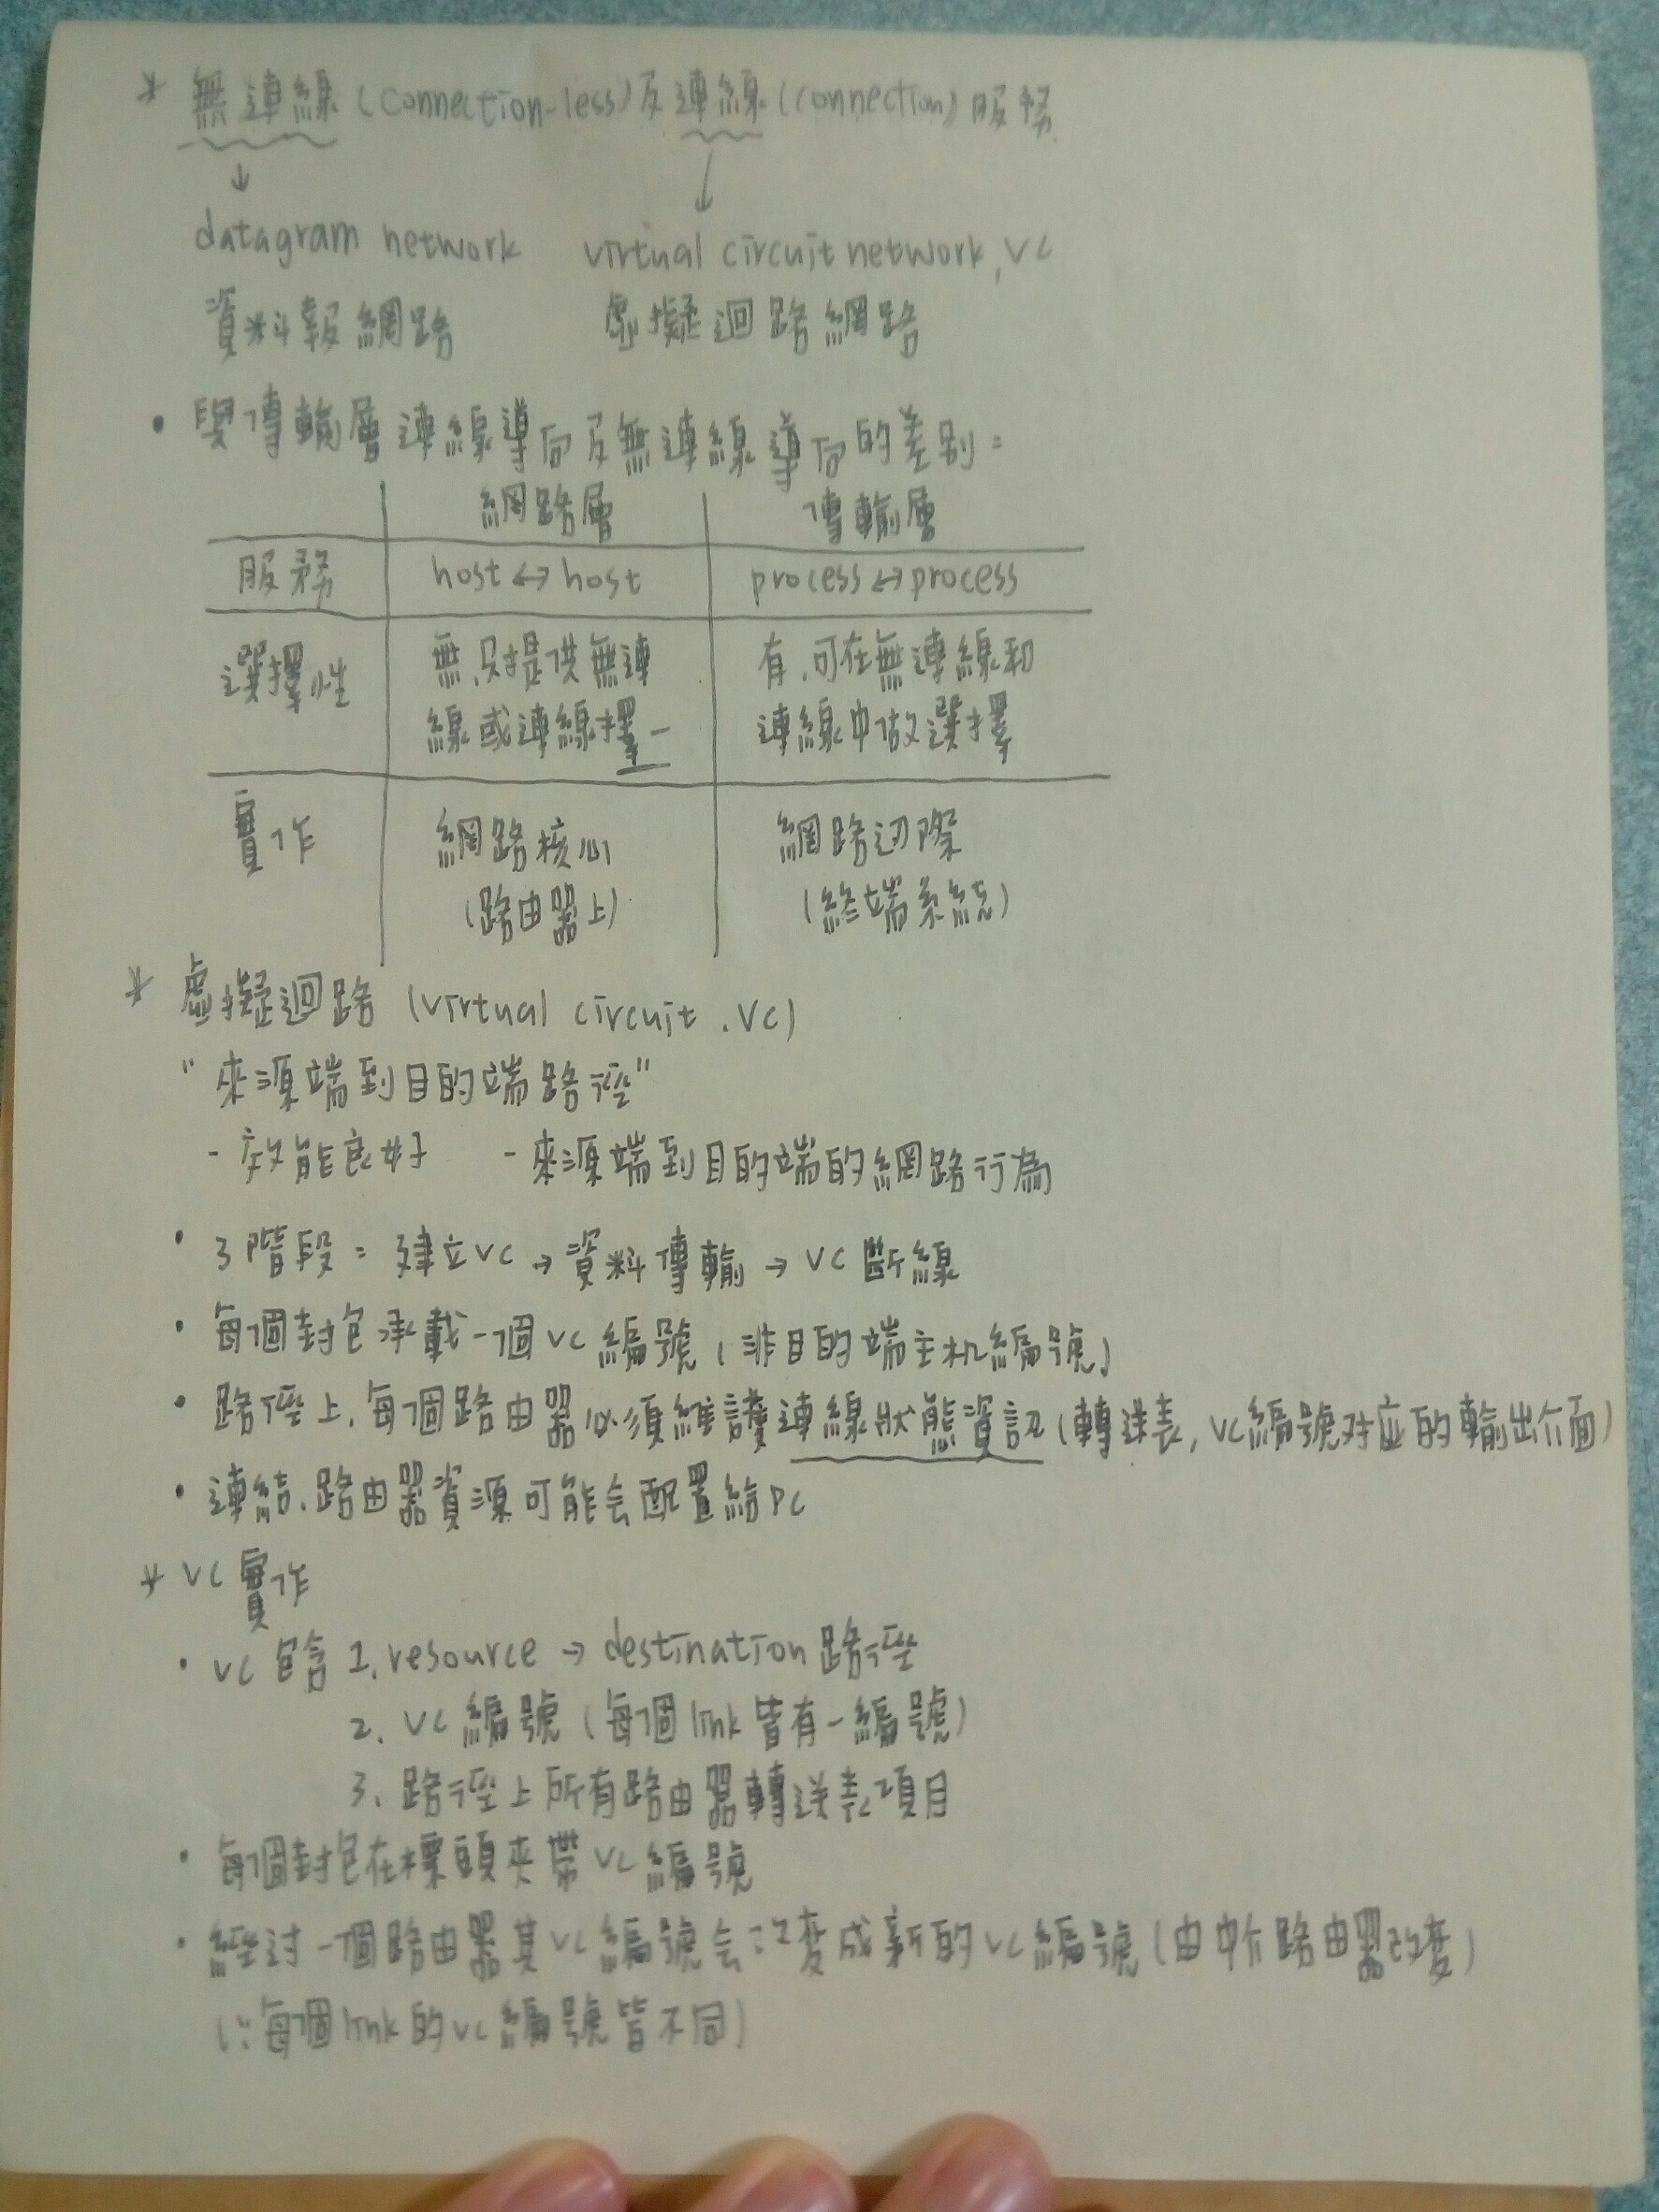 * 無連線 (connection-less) 及連線 (connection) 服務
↓ ↓
datagram network virtual circuit network, VC
資料報網路 虛擬迴路網路
• 與傳輸層連線導向及無連線導向的差别:
網路層 傳輸層
服務 host ↔ host process ↔ process
選擇性 無,只提供無連 有,可在無連線和
線或連線擇一 連線中做選擇
實作 網路核心 網路边際
(路由器上) (終端系統)
* 虛擬迴路 (virtual circuit, VC)
"來源端到目的端路徑"
- 效能良好 - 來源端到目的端的網路行為
• 3階段: 建立VC → 資料傳輸 → VC 斷線
• 每個封包承載一個 VC 編號 (非目的端主机編號)
• 路徑上,每個路由器必須維護連線狀態資訊 (轉送表, VC編號对应的輸出介面)
• 連結、路由器資源可能会配置給 PC
* VC 實作
• VC 包含 1. resource → destination 路徑
2. VC 編號 (每個 link 皆有一編號)
3. 路徑上所有路由器轉送表項目
• 每個封包在標頭夾帶 VC 編號
• 經过一個路由器其 VC 編號会改変成新的 VC 編號 (由中介路由器改変)
(∵每個 link 的 VC 編號皆不同)